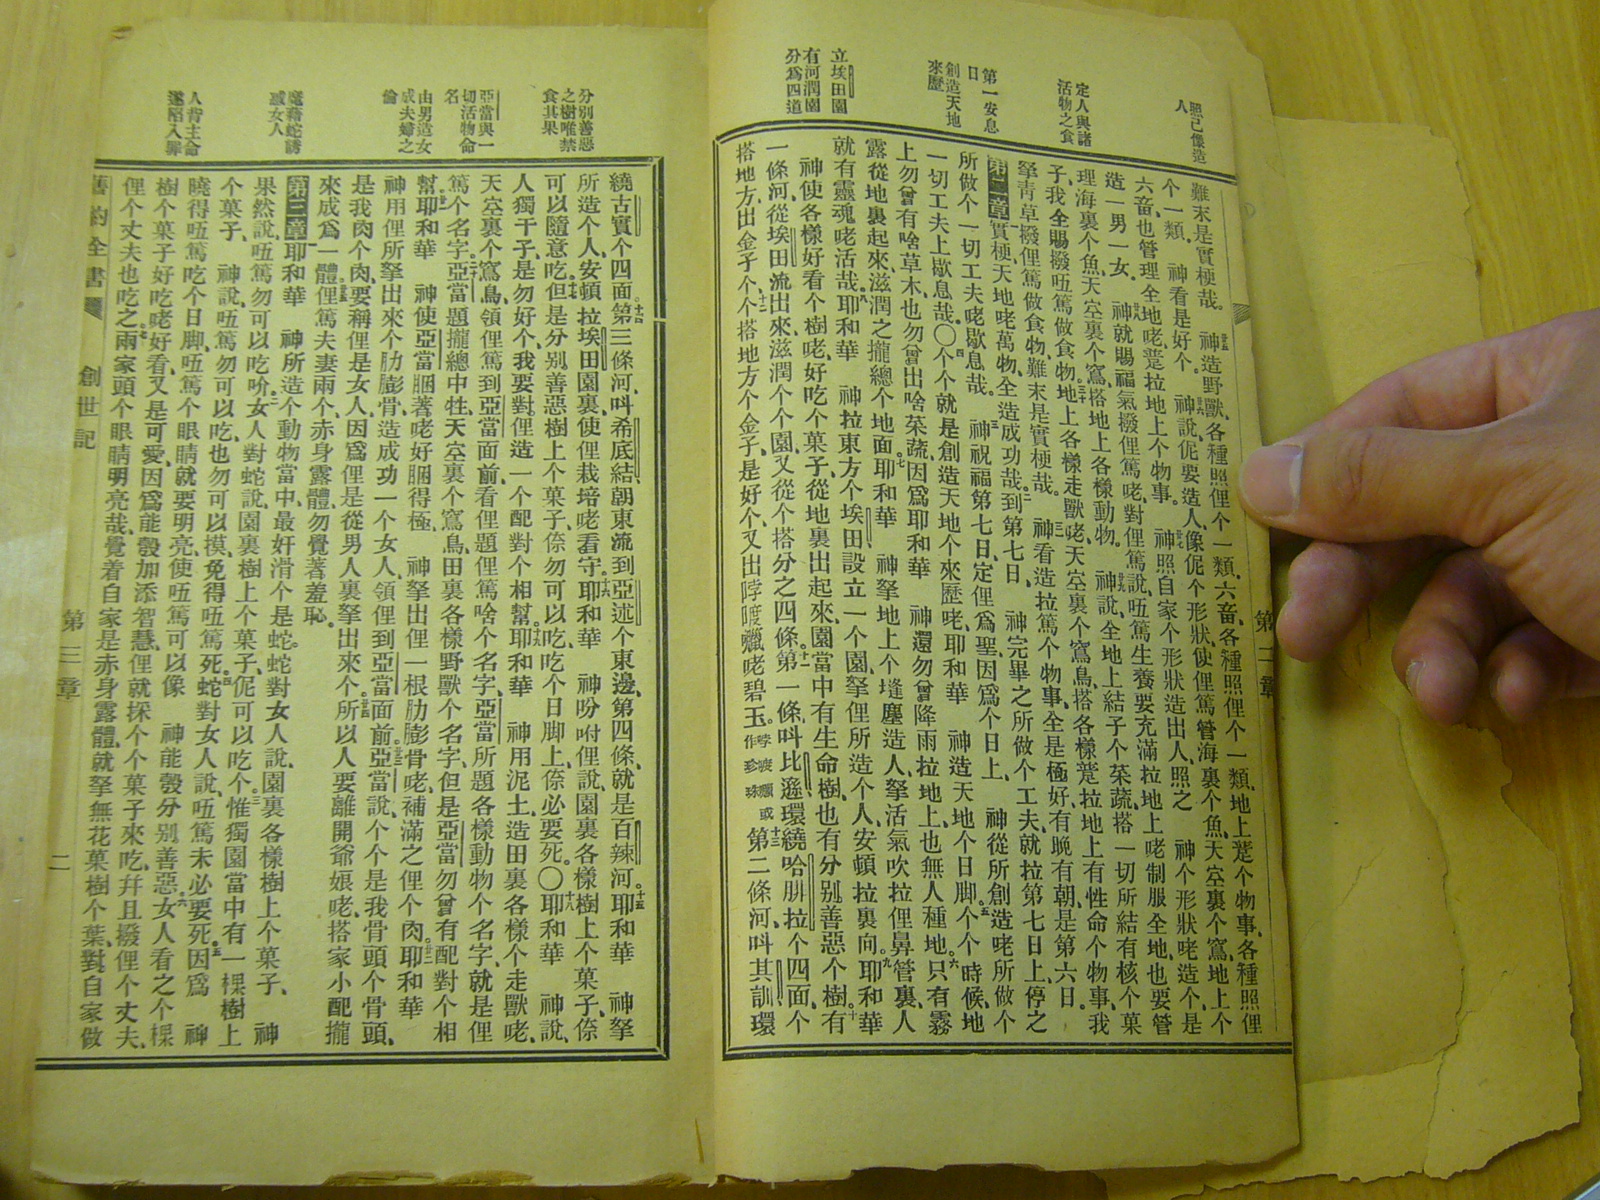 照已像造
人
定人與諸
活物之食
第一安息
日
創造天地
來歷
立埃田園
有河潤園
分爲四道
第二章
難末是實梗哉。神造野獸、各種照俚个一類、六畜、各種照俚个一類、地上蹔个物事、各種照俚
个一類。神看是好个。神說、伲要造人、像伲个形狀、使俚篤管海裏个魚、天空裏个窵、地上个
六畜、也管理全地咾蹔拉地上个物事。神照自家个形狀造出人、照之神个形狀咾造个、是
造一男一女。神就賜福氣撥俚篤咾、對俚篤說、唔篤生養、要充滿拉地上咾制服全地、也要管
理海裏个魚、天空裏个窵、搭地上各樣動物。神說、全地上結子个菜蔬、搭一切所結有核个菓
子、我全賜撥唔篤做食物。地上各樣走獸咾、天空裏个窵鳥、搭各樣蹔拉地上有性命个物事、我
拏青草撥俚篤做食物、難末是實梗哉。神看造拉篤个物事、全是極好、有晚有朝、是第六日。
第二章實梗天地咾萬物、全造成功哉。到第七日、神完畢之所做个工夫、就拉第七日上停之
所做个一切工夫咾歇息哉。神祝福第七日、定俚爲聖、因爲个日上、神從所創造咾所做个
一切工夫上歇息哉。〇个个就是創造天地个來歷咾、耶和華神造天地个日脚、个个時候、地
上勿曾有啥草木、也勿曾出啥菜蔬、因爲耶和華神還勿曾降雨拉地上、也無人種地。只有霧
露從地裏起來、滋潤之攏總个地面。耶和華神拏地上个塵造人、拏活氣吹拉俚鼻管裏、人
就有靈魂咾活哉。耶和華神拉東方个埃田、設立一个園、拏俚所造个人、安頓拉裏向。耶和華
神使各樣好看个樹咾、好吃个菓子、從地裏出起來、園當中有生命樹、也有分别善惡个樹。有
一條河、從埃田流出來、滋潤个个園、又從个搭分之四條。第一條、呌比遜、環繞哈腓拉个四面、个
搭地方、出金子。个个搭地方个金子、是好个、又出咾碧玉。第二條河、呌其訓、環
分别善惡
之樹唯禁
食其果
亞當與一
切活物命
名
由男造女
成夫婦之
倫
魔藉蛇誘
惑女人
人背主命
遂陷入罪
繞古實个四面。第三條河、呌希底結、朝東流到亞述个東邊、第四條、就是百辣河。耶和華神拏
所造个人、安頓拉埃田園裏、使俚栽培咾看守。耶和華神吩咐俚說、園裏各樣樹上个菓子、倷
可以隨意吃。但是分别善惡樹上个菓子、倷勿可以吃、吃个日脚上、倷必要死。〇耶和華神說、
人獨干子、是勿好个、我要對俚造一个配對个相幫。耶和華神用泥土、造田裏各樣个走獸咾、
天空裏个窵鳥、領俚篤到亞當面前、看俚題俚篤啥个名字、亞當所題各樣動物个名字、就是俚
篤个名字。亞當題攏總中牲、天空裏个窵鳥、田裏各樣野獸个名字、但是亞當勿曾有配對个相
幫。耶和華神使亞當睏著咾好睏得極、神拏出俚一根肋膨骨咾、補滿之俚个肉。耶和華
神用俚所拏出來个肋膨骨、造成功一个女人、領俚到亞當面前。亞當說、个个是我骨頭个骨頭、
是我肉个肉、要稱俚是女人、因爲俚是從男人裏拏出來个。所以人要離開爺娘咾、搭家小配攏
來、成爲一體。俚篤夫妻兩个、赤身露體、勿覺著羞恥。
第三章耶和華神所造个動物當中、最奸滑个是蛇、蛇對女人說、園裏各樣樹上个菓子、神
果然說、唔篤勿可以吃吤。女人對蛇說、園裏樹上个菓子、伲可以吃个。惟獨園當中有一棵樹上
个菓子、神說、唔篤勿可以吃、也勿可以摸、免得唔篤死。蛇對女人說、唔篤未必要死。因爲神
曉得唔篤吃个日脚、唔篤个眼睛就要明亮、使唔篤可以像神能彀分别善惡。女人看之个棵
樹个菓子好吃咾好看、又是可愛、因爲能彀加添智慧、俚就採个个菓子來吃、幷且撥俚个丈夫、
俚个丈夫也吃之。兩家頭个眼睛明亮哉、覺着自家是赤身露體、就拏無花菓樹个葉、對自家做
舊約全書 創世記 第三章 二